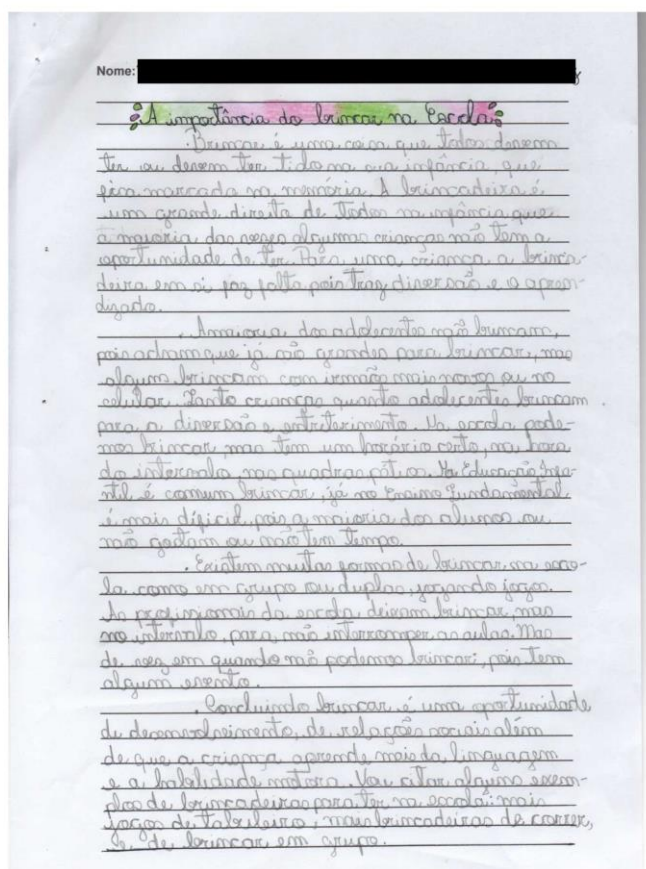 Nome:
A importância do brincar na Escola
Brincar é uma coisa que todos devem
ter ou devem ter tido na sua infância, que
fica marcada na memória. A brincadeira é
um grande direito de todos na infância que
a maioria das vezes algumas crianças não tem a
oportunidade de ter. Para uma criança a brinca-
deira em si faz falta pois traz diversão e o apren-
dizado.
A maioria dos adolecentes não brincam,
pois acham que já são grandes para brincar, mas
alguns brincam com irmãos mais novos ou no
celular. Tanto crianças quanto adolecentes brincam
para a diversão e entriterimento. Na escola pode-
mos brincar, mas tem um horário certo, na hora
do intervalo, nas quadras, pátio. Na Educação Infa-
ntil é comum brincar, já no Ensino Fundamental
é mais difícil, pois a maioria dos alunos ou
não gostam ou não tem tempo.
Existem muitas formas de brincar na esco-
la como em grupo ou duplas, jogando jogos.
As profissionais da escola deixam brincar, mas
no intervalo, para não interromper as aulas. Mas
de vez em quando não podemos brincar, pois tem
algum evento.
Concluindo brincar é uma oportunidade
de desenvolveimento, de relações sociais além
de que a criança aprende mais da linguagem
e a habilidade motora. Vou citar alguns exem-
plos de brincadeiras para ter na escola: mais
jogos de tabuleiro, mais brincadeiras de correr,
e de brincar em grupo.